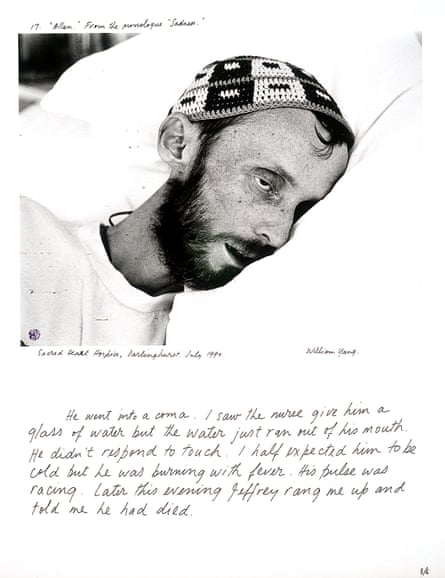 17. "Allan." From the monologue "Sadness."
Sacred Heart Hospice, Darlinghurst July 1990
William Yang.
He went into a coma. I saw the nurse give him a
glass of water but the water just ran out of his mouth.
He didn't respond to touch. I half expected him to be
cold but he was burning with fever. His pulse was
racing. Later this evening Jeffrey rang me up and
told me he had died.